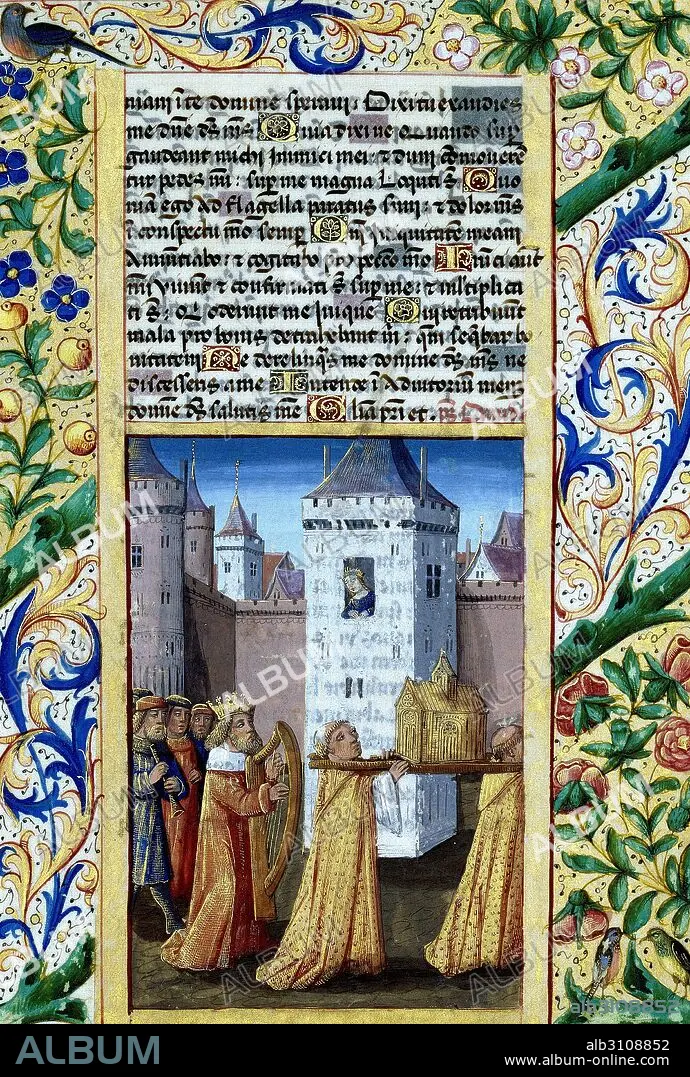 niam ī te domine speraui: Dixi tu exaudies
me dn̄e ds̄ ms̄ Quia dixi ne Quando sup̄
gaudeant michi Inimici mei: et dum cōmouen
tur pedes mī: sup̄ me magna Loquti sūt Quo
niā ego Ad flagella paratus sum: et dolor
ī conspectu mō semper Iniquitatē meam
Annunciabo: et cogitabo pro mō Inimici aut
Viuunt et confirmati sūt sup̄ me: et multiplicati
ti sūt Oderunt me Inique Qui retribuunt
mala pro bonis detrahebant m̄: qm̄ sequebar bo
nitatem Ne derelinquas me domine ds̄ ms̄ ne
discesseris a me Intende ī Adiutorium meum
domine ds̄ salutis mee Glia pr̄i et
ALBUM
ab3108852
www.album-online.com